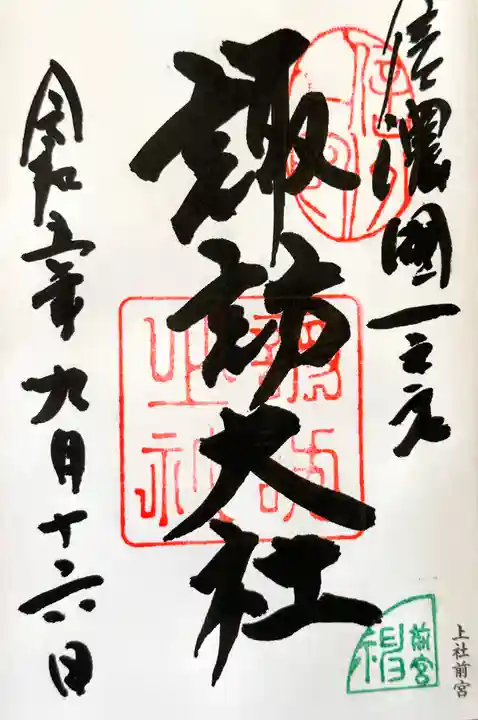 信濃國一之宮
諏訪大社
令和五年九月十六日
上社前宮
前宮